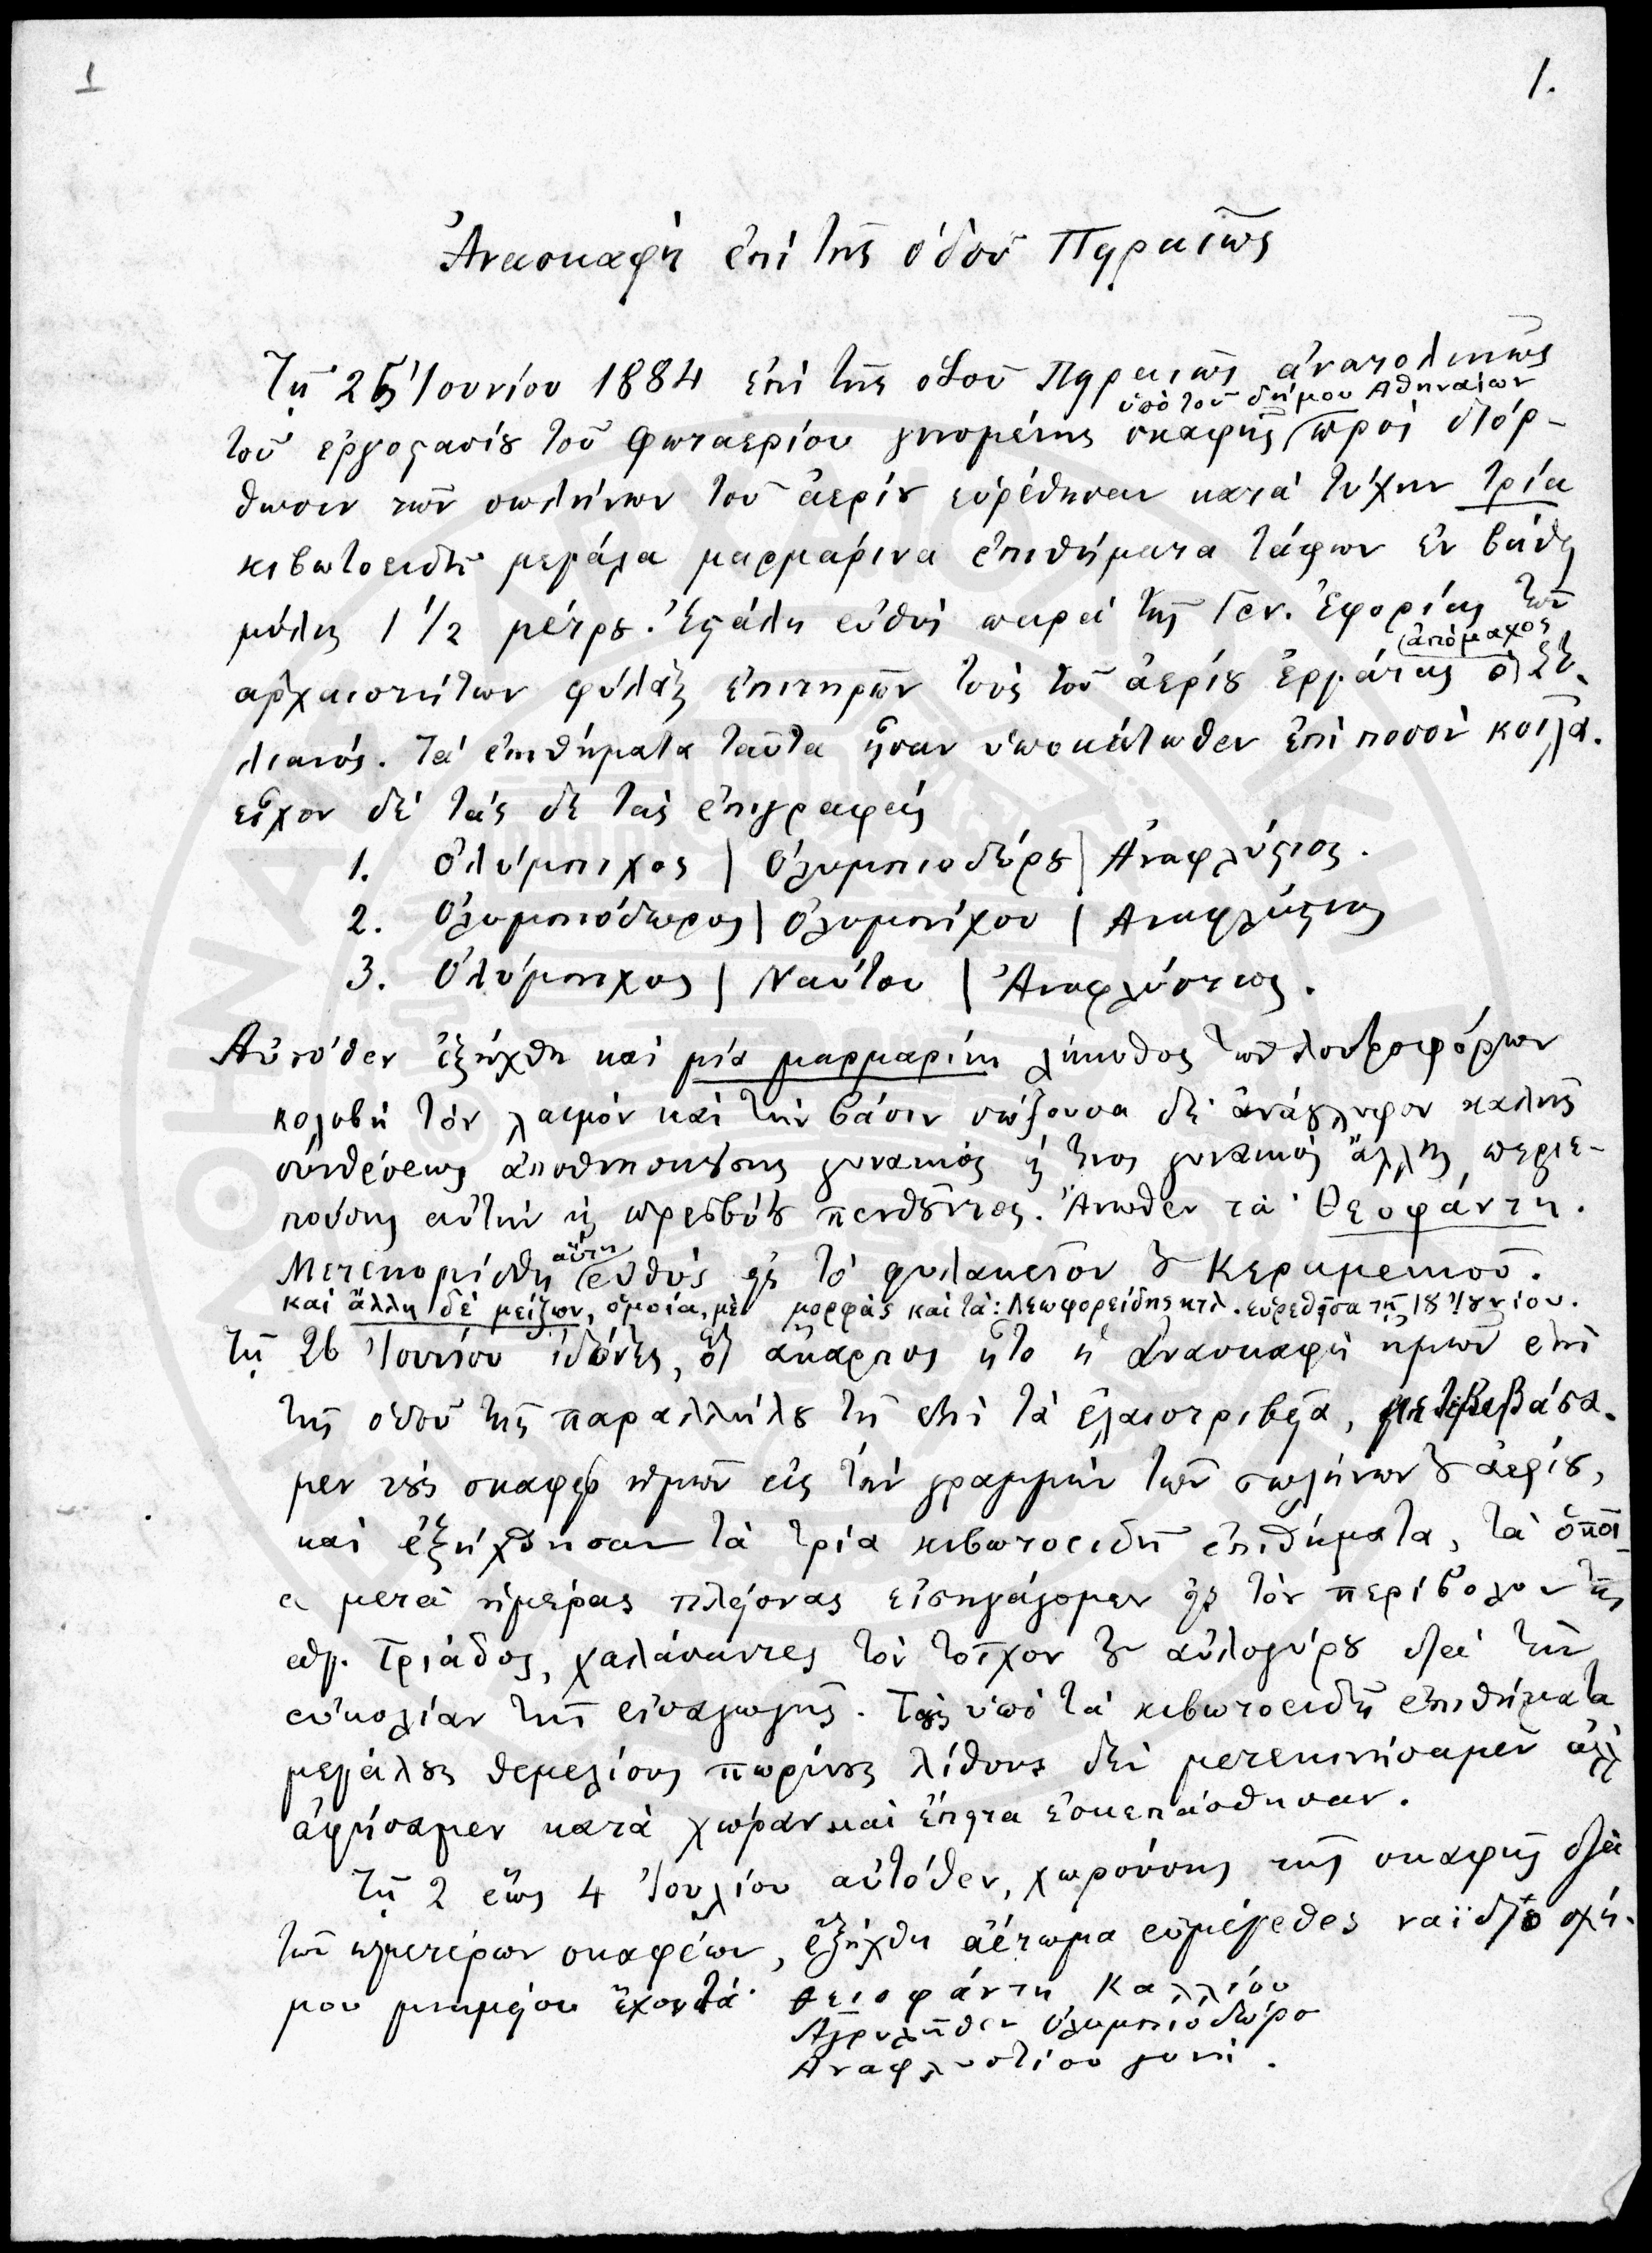 1
1.
Ἀνασκαφὴ ἐπὶ τῆς ὁδοῦ Πειραιῶς
Τῇ 25 Ἰουνίου 1884 ἐπὶ τῆς ὁδοῦ Πειραιῶς ἀνατολικῶς
ὑπὸ τοῦ δήμου Ἀθηναίων
τοῦ ἐργοστασίου τοῦ Φωταερίου γινομένης σκαφῆς πρὸς διόρ-
θωσιν τῶν σωλήνων τοῦ ἀερίου εὑρέθησαν κατὰ τύχην τρία
κιβωτοειδῆ μεγάλα μαρμάρινα ἐπιθήματα τάφων ἐν βάθει
μόλις 1 1/2 μέτρου. Ἐστάλη εὐθὺς παρὰ τῆς Γεν. Ἐφορίας τῶν
ἀπόμαχος
ἀρχαιοτήτων φύλαξ ἐπιτηρῶν τοὺς τοῦ ἀερίου ἐργάτας ὁ
Τὰ ἐπιθήματα ταῦτα ἦσαν ὑποκάτωθεν ἐπὶ ποσὸν κοῖλα.
εἶχον δὲ τάς δε τὰς ἐπιγραφάς
1. Ὀλύμπιχος | Ὀλυμπιοδώρου | Ἀναφλύστιος.
2. Ὀλυμπιόδωρος | Ὀλυμπίχου | Ἀναφλύστιος
3. Ὀλύμπιχος | Ναύτου | Ἀναφλύστιος.
Αὐτόθεν ἐξήχθη καὶ μία μαρμαρίνη λήκυθος τῶν λουτροφόρων
κολοβὴ τὸν λαιμὸν καὶ τὴν βάσιν σώζουσα δὲ ἀνάγλυφον καλῆς
συνθέσεως ἀποθνησκούσης γυναικὸς καί τινος γυναικὸς ἄλλης περιε-
πούσης αὐτὴν καὶ πρεσβύτου πενθοῦντος. Ἄνωθεν τὰ Θεοφάντη.
αὕτη
Μετεκομίσθη εὐθὺς εἰς τὸ φυλακεῖον τοῦ Κεραμεικοῦ.
καὶ ἄλλη δὲ μείζων, ὁμοία, μὲ μορφὰς καὶ τά: Λεωφορείδης κτλ. εὑρεθεῖσα τῇ 18 Ἰουνίου.
Τῇ 26 Ἰουνίου ἰδόντες, ὅτι ἄκαρπος ἦτο ἡ ἀνασκαφὴ ἡμῶν ἐπὶ
τῆς ὁδοῦ τῆς παραλλήλου τῇ ἐπὶ τὰ ἐλαιοτριβεῖα, μετεβιβάσα-
μεν τοὺς σκαφεῖς ἡμῶν εἰς τὴν γραμμὴν τῶν σωλήνων τοῦ ἀερίου,
καὶ ἐξήχθησαν τὰ τρία κιβωτοειδῆ ἐπιθήματα, τὰ ὁποῖ
α μετὰ ἡμέρας πλείονας εἰσηγάγομεν εἰς τὸν περίβολον τῆς
ἁγ. Τριάδος, χαλάσαντες τὸν τοῖχον τοῦ αὐλογύρου διὰ τὴν
εὐκολίαν τῆς εἰσαγωγῆς. Τοὺς ὑπὸ τὰ κιβωτοειδῆ ἐπιθήματα
μεγάλους θεμελίους πωρίνους λίθους δὲν μετεκινήσαμεν ἀλλ'
ἀφήσαμεν κατὰ χώραν καὶ ἔπειτα ἐσκεπάσθησαν.
Τῇ 2 ἕως 4 Ἰουλίου αὐτόθεν, χωρούσης τῆς σκαφῆς διὰ
τῶν ἡμετέρων σκαφέων, ἐξήχθη ἀέτωμα εὐμέγεθες ναϊδιο σχή-
μου μνημείου ἔχον τά· Θεοφάντη Καλλίου
Ἀγρυλῆθεν Ὀλυμπιοδώρο
Ἀναφλυστίου γυνή.